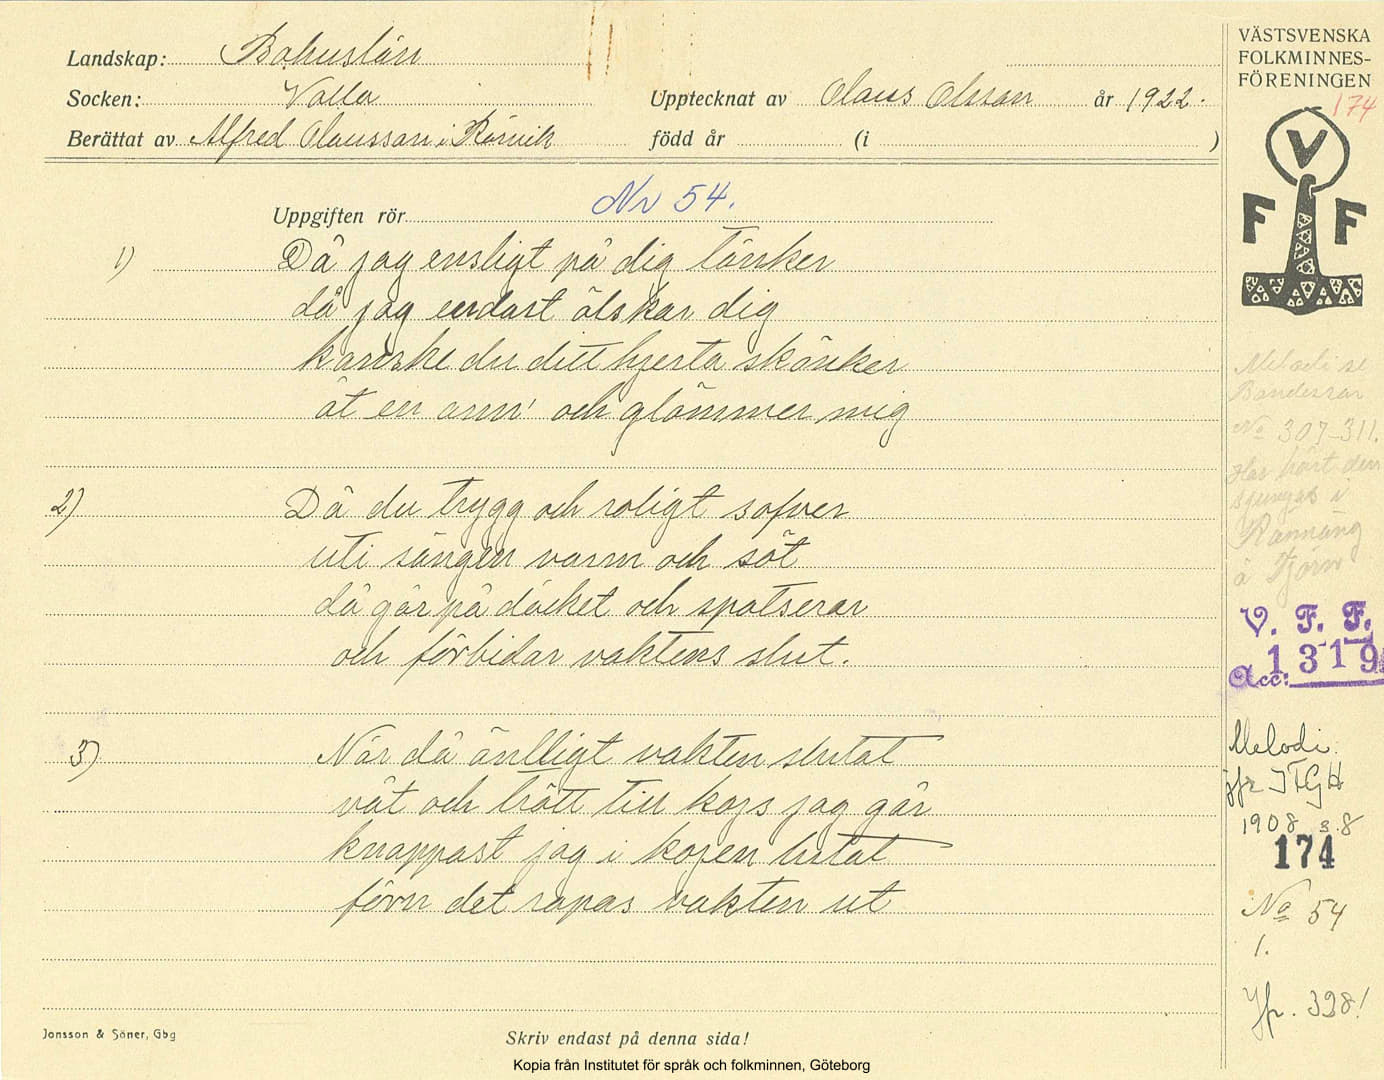 Landskap: Bohuslän
Socken: Valla
Upptecknat av Olaus Olsson år 1922.
Berättat av Alfred Olaussan i Rörvik
född år (i )
Uppgiften rör Nr 54.
1) Då jag ensligt på dig tänker
då jag endast älskar dig
kanske du ditt hjerta skänker
åt en ann' och glömmer mig
2) Då du trygg och roligt sofver
uti sängen varm och söt
då går på däcket och spatserar
och förbidar vaktens slut.
3) När då änlligt vakten slutat
våt och trött till kojs jag går
knappast jag i kojen lutat
förrn det ropas vakten ut
Jonsson & Söner, Gbg
Skriv endast på denna sida!
Kopia från Institutet för språk och folkminnen, Göteborg
VÄSTSVENSKA
FOLKMINNES-
FÖRENINGEN
174
V
F F
Melodi se
No 307-311.
Har hört den
sjungas i
Rönnäng
å Tjörn
V. F. F.
Acc: 1319
Melodi
jfr ITGH
1908 s. 8
174
No 54
1.
Jfr. 398!